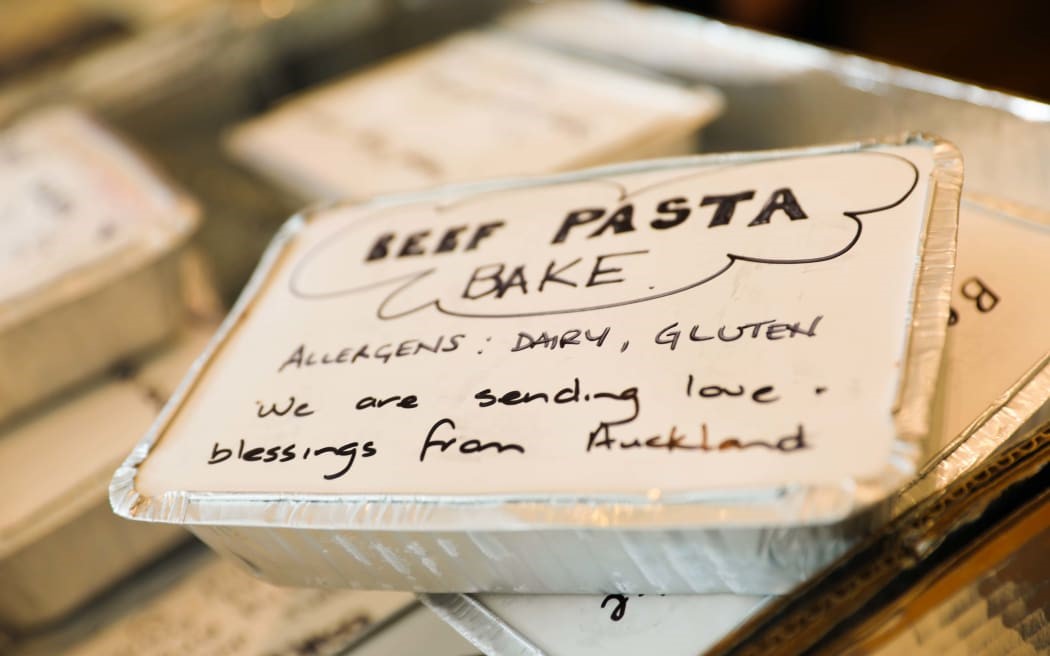 BEEF PASTA
BAKE.
ALLERGENS: DAIRY, GLUTEN
We are sending love.
blessings from Auckland
B